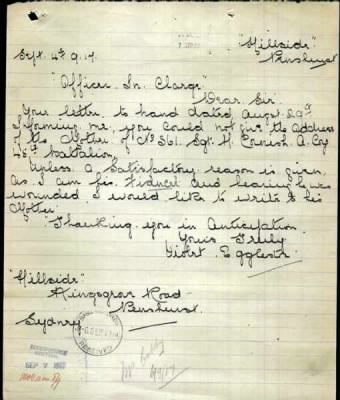 "Hillside"
Penshurst
Sept. 4th 9.17.
"Officer In Charge"
Dear Sir
Your letter to hand dated Augst 29th
informing me you could not give the address
of the Mother of No 3101. Sgt H. Cornish A. Coy
45th Battalion.
Unless a Satisfactory reason is given,
as I am his fiancee and hearing he was
wounded I would like to write to his
Mother.
Thanking you in Anticipation
Yours Truly
Violet Eggleston
"Hillside"
Kingsgrove Road
Penshurst.
Sydney
RECEIVED
SEP 7 1917
6/9/17